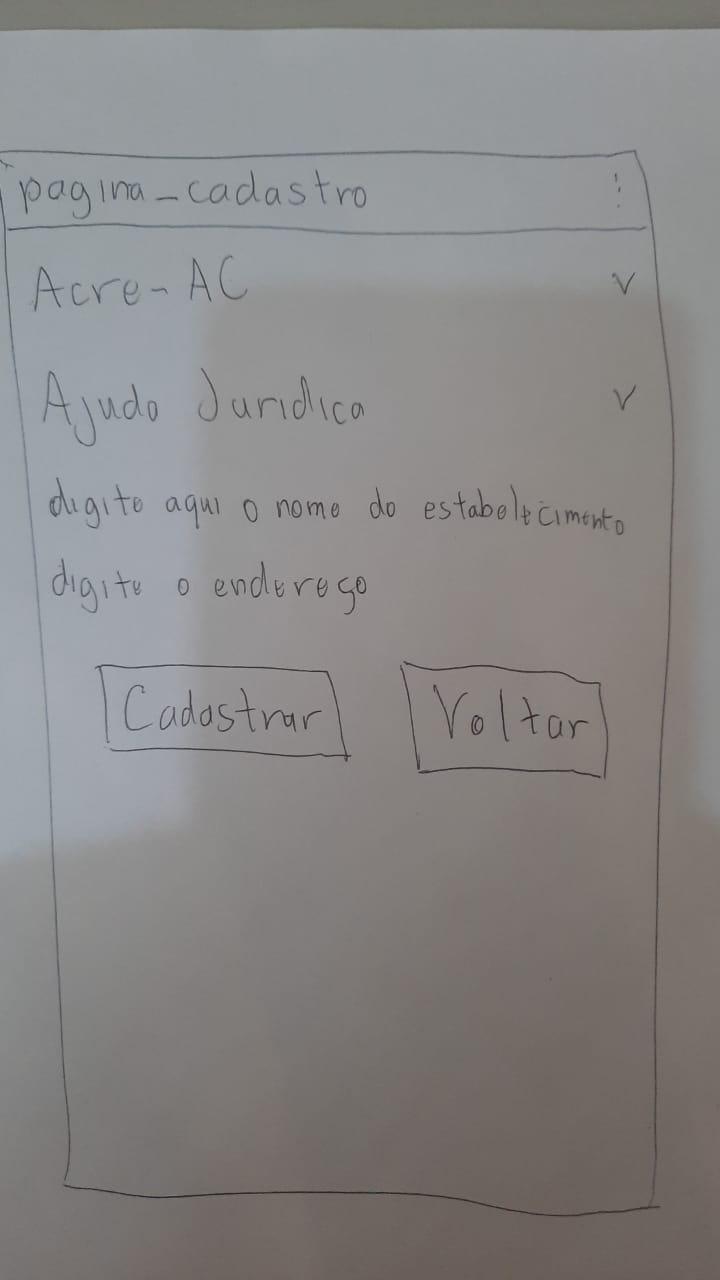 pagina_cadastro
Acre-AC
Ajudo Juridica
digito aqui o nome do estabelecimento
digite o endereço
Cadastrar
Voltar